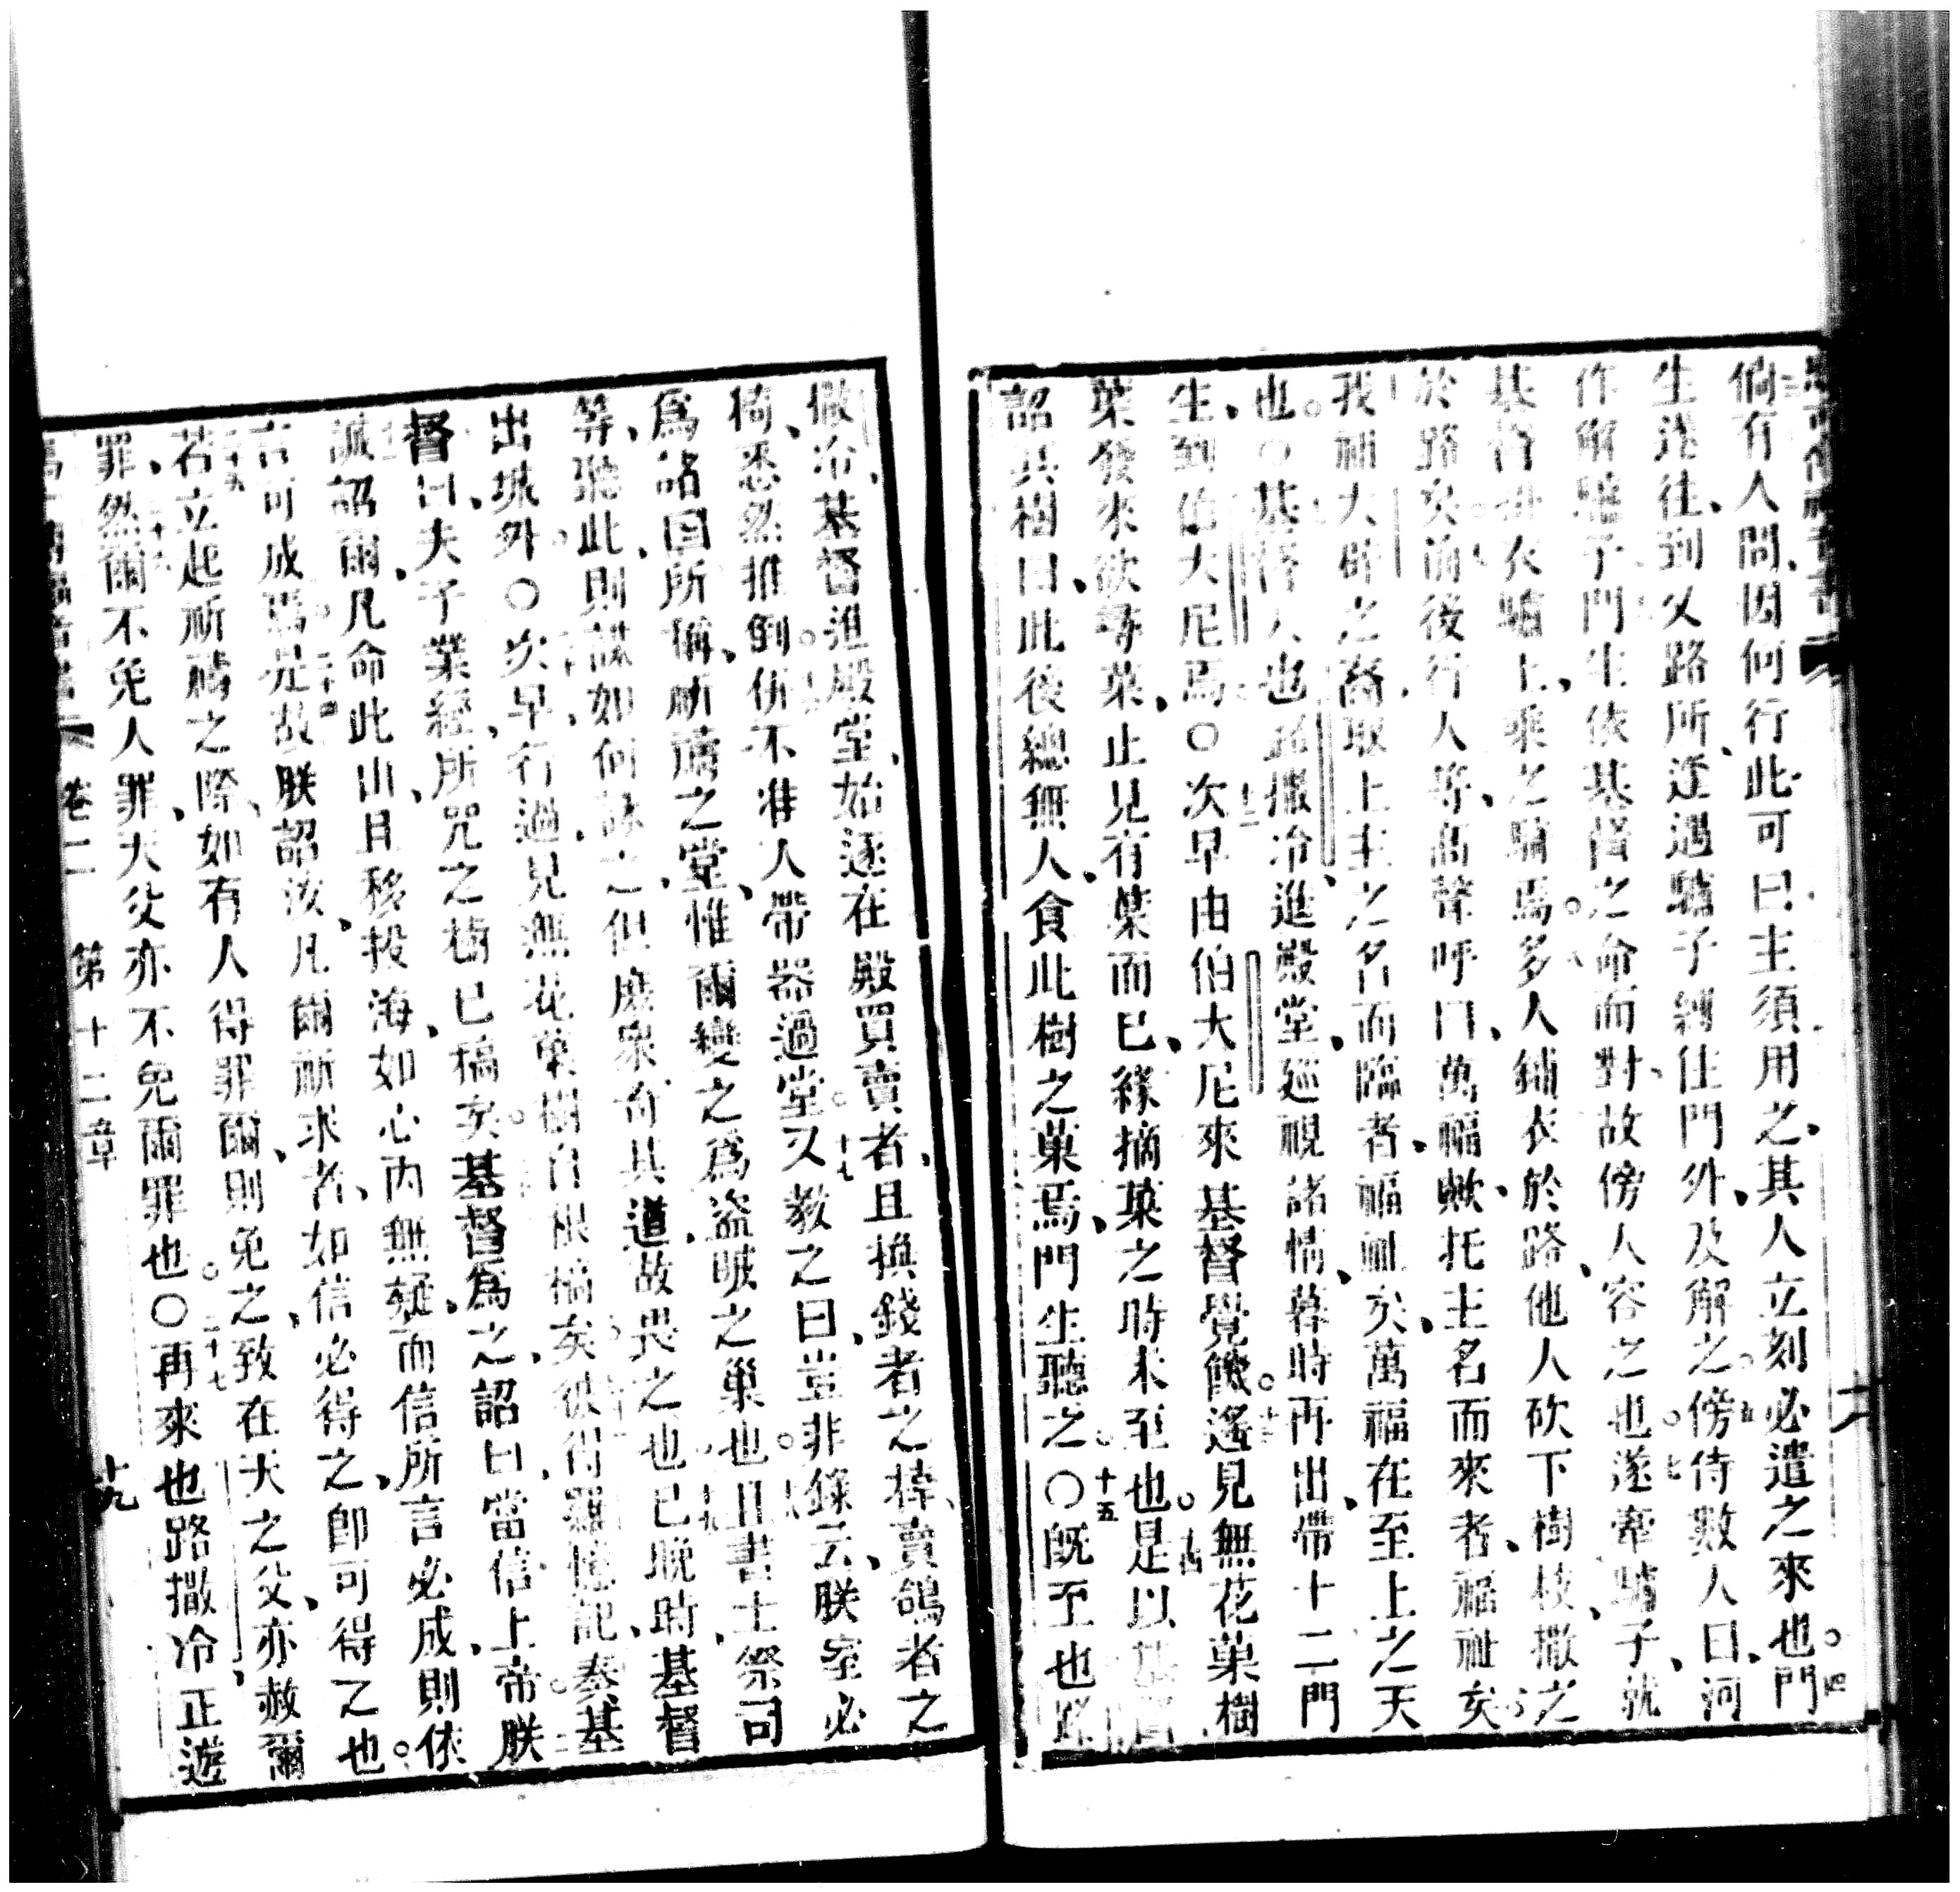 倘有人問、因何行此、可曰主須用之、其人立刻必遣之來也。四門
生遂往、到乂路所、逢遇驢子縛住門外、及解之。五傍侍數人曰、河
作解驢子、門生依基督之命而對、故傍人容之也。七遂牽驢子、就
基督、卦衣驢上、乘之騎焉。八多人鋪衣於路、他人砍下樹枝、撒之
於路矣、前後行人等、高聲呼曰、萬福歟、托主名而來者、福祉矣。
我祖大辟之裔、取上主之名而臨者、福祉矣、萬福在至上之天
也。○基督入也路撒冷、進殿堂、廵視諸情、暮時再出、帶十二門
生、到伯大尼焉○次早由伯大尼來、基督覺饑。十三遙見無花菓樹
葉發、來欲尋菓、止見有葉而已、緣摘菓之時未至也。十四是以基督
詔其樹曰、此後總無人食此樹之菓焉、門生聽之。十五○旣至也路
撒冷、基督進殿堂、始逐在殿買賣者、且換錢者之棹、賣鴿者之
椅、悉然推倒。十六併不准人帶器過堂。十七又敎之曰、豈非錄云、朕室必
爲諸囯所稱、祈禱之堂、惟爾變之爲盜賊之巢也。十八且書士、祭司
等聽此、則謀如何誅之、但庶衆奇其道、故畏之也。十九已晚時、基督
出城外。○二十次早行過、見無花菓樹自根槁矣。二十一彼得羅憶記、奏基
督曰、夫子業經所咒之樹已槁矣。二十二基督爲之詔曰、當信上帝、朕
誠詔爾、凡命此山、且移投海、如心內無疑、而信所言必成、則依
言可成焉。二十四是故朕詔汝、凡爾祈求者、如信必得之、卽可得之也。
二十五若立起祈禱之際、如有人得罪爾、則免之、致在天之父、亦赦爾
罪、二十六然爾不免人罪、天父亦不免爾罪也。二十七○再來也路撒冷、正遊
卷二 第十二章 十九